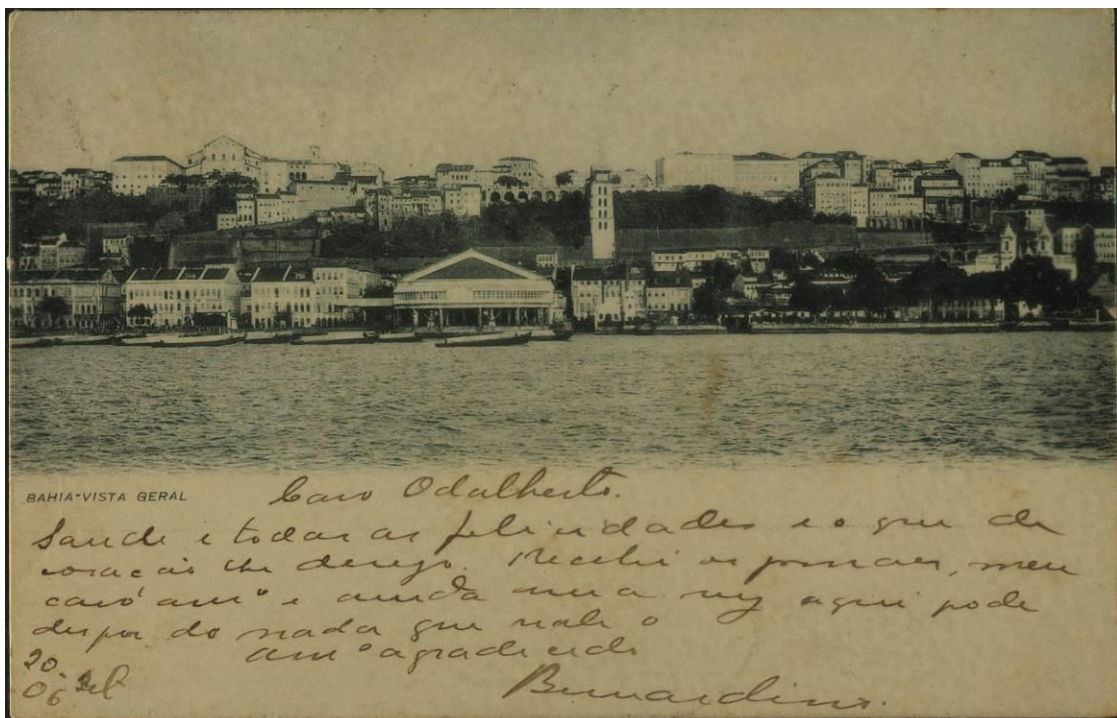 BAHIA-VISTA GERAL
Caro Odalberto.
Saude e todas as felicidades e o que de
coração lhe desejo. Recebi os , meu
caro am° e ainda uma vez aqui pode
dispor do nada que vale o
am° agradecido
20.
06
Bernardino.